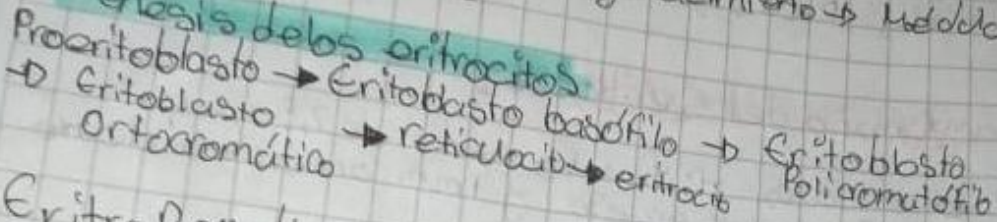 → Medula
delos eritrocitos
Proeritoblasto → Eritoblasto basófilo → Eritoblasto Policromatófilo
→ Eritoblasto Ortocromático → reticulocito → eritrocito